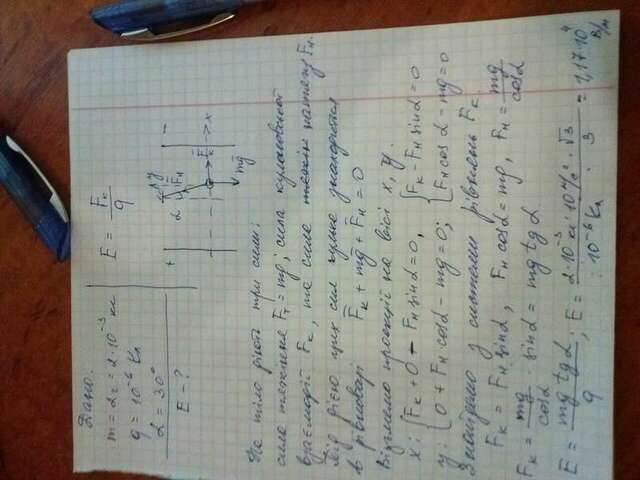 Дано:
m = 2г = 2·10⁻³ кг
q = 10⁻⁶ Кл
α = 30°
E - ?
E = Fк/q
+ −
y
α F̄н
F̄к x
mḡ
На тіло діють три сили:
сила тяжіння Fт = mg; сила кулонівської
взаємодії Fк, та сила натягу Fн.
Під дією цих сил кулька знаходиться
в рівновазі F̄к + mḡ + F̄н = 0
Візьмемо проекції на вісі x, y.
x: { Fк + 0 − Fн sinα = 0, { Fк − Fн sinα = 0
y: { 0 + Fн cosα − mg = 0; { Fн cosα − mg = 0
Знайдемо з системи рівнянь Fк
Fк = Fн sinα, Fн cosα = mg, Fн = mg/cosα
Fк = mg/cosα · sinα = mg tgα
E = mg tgα/q, E = 2·10⁻³ кг · 10 м/с² · √3 / 10⁻⁶ Кл · 3 = 1,17·10⁴ В/м